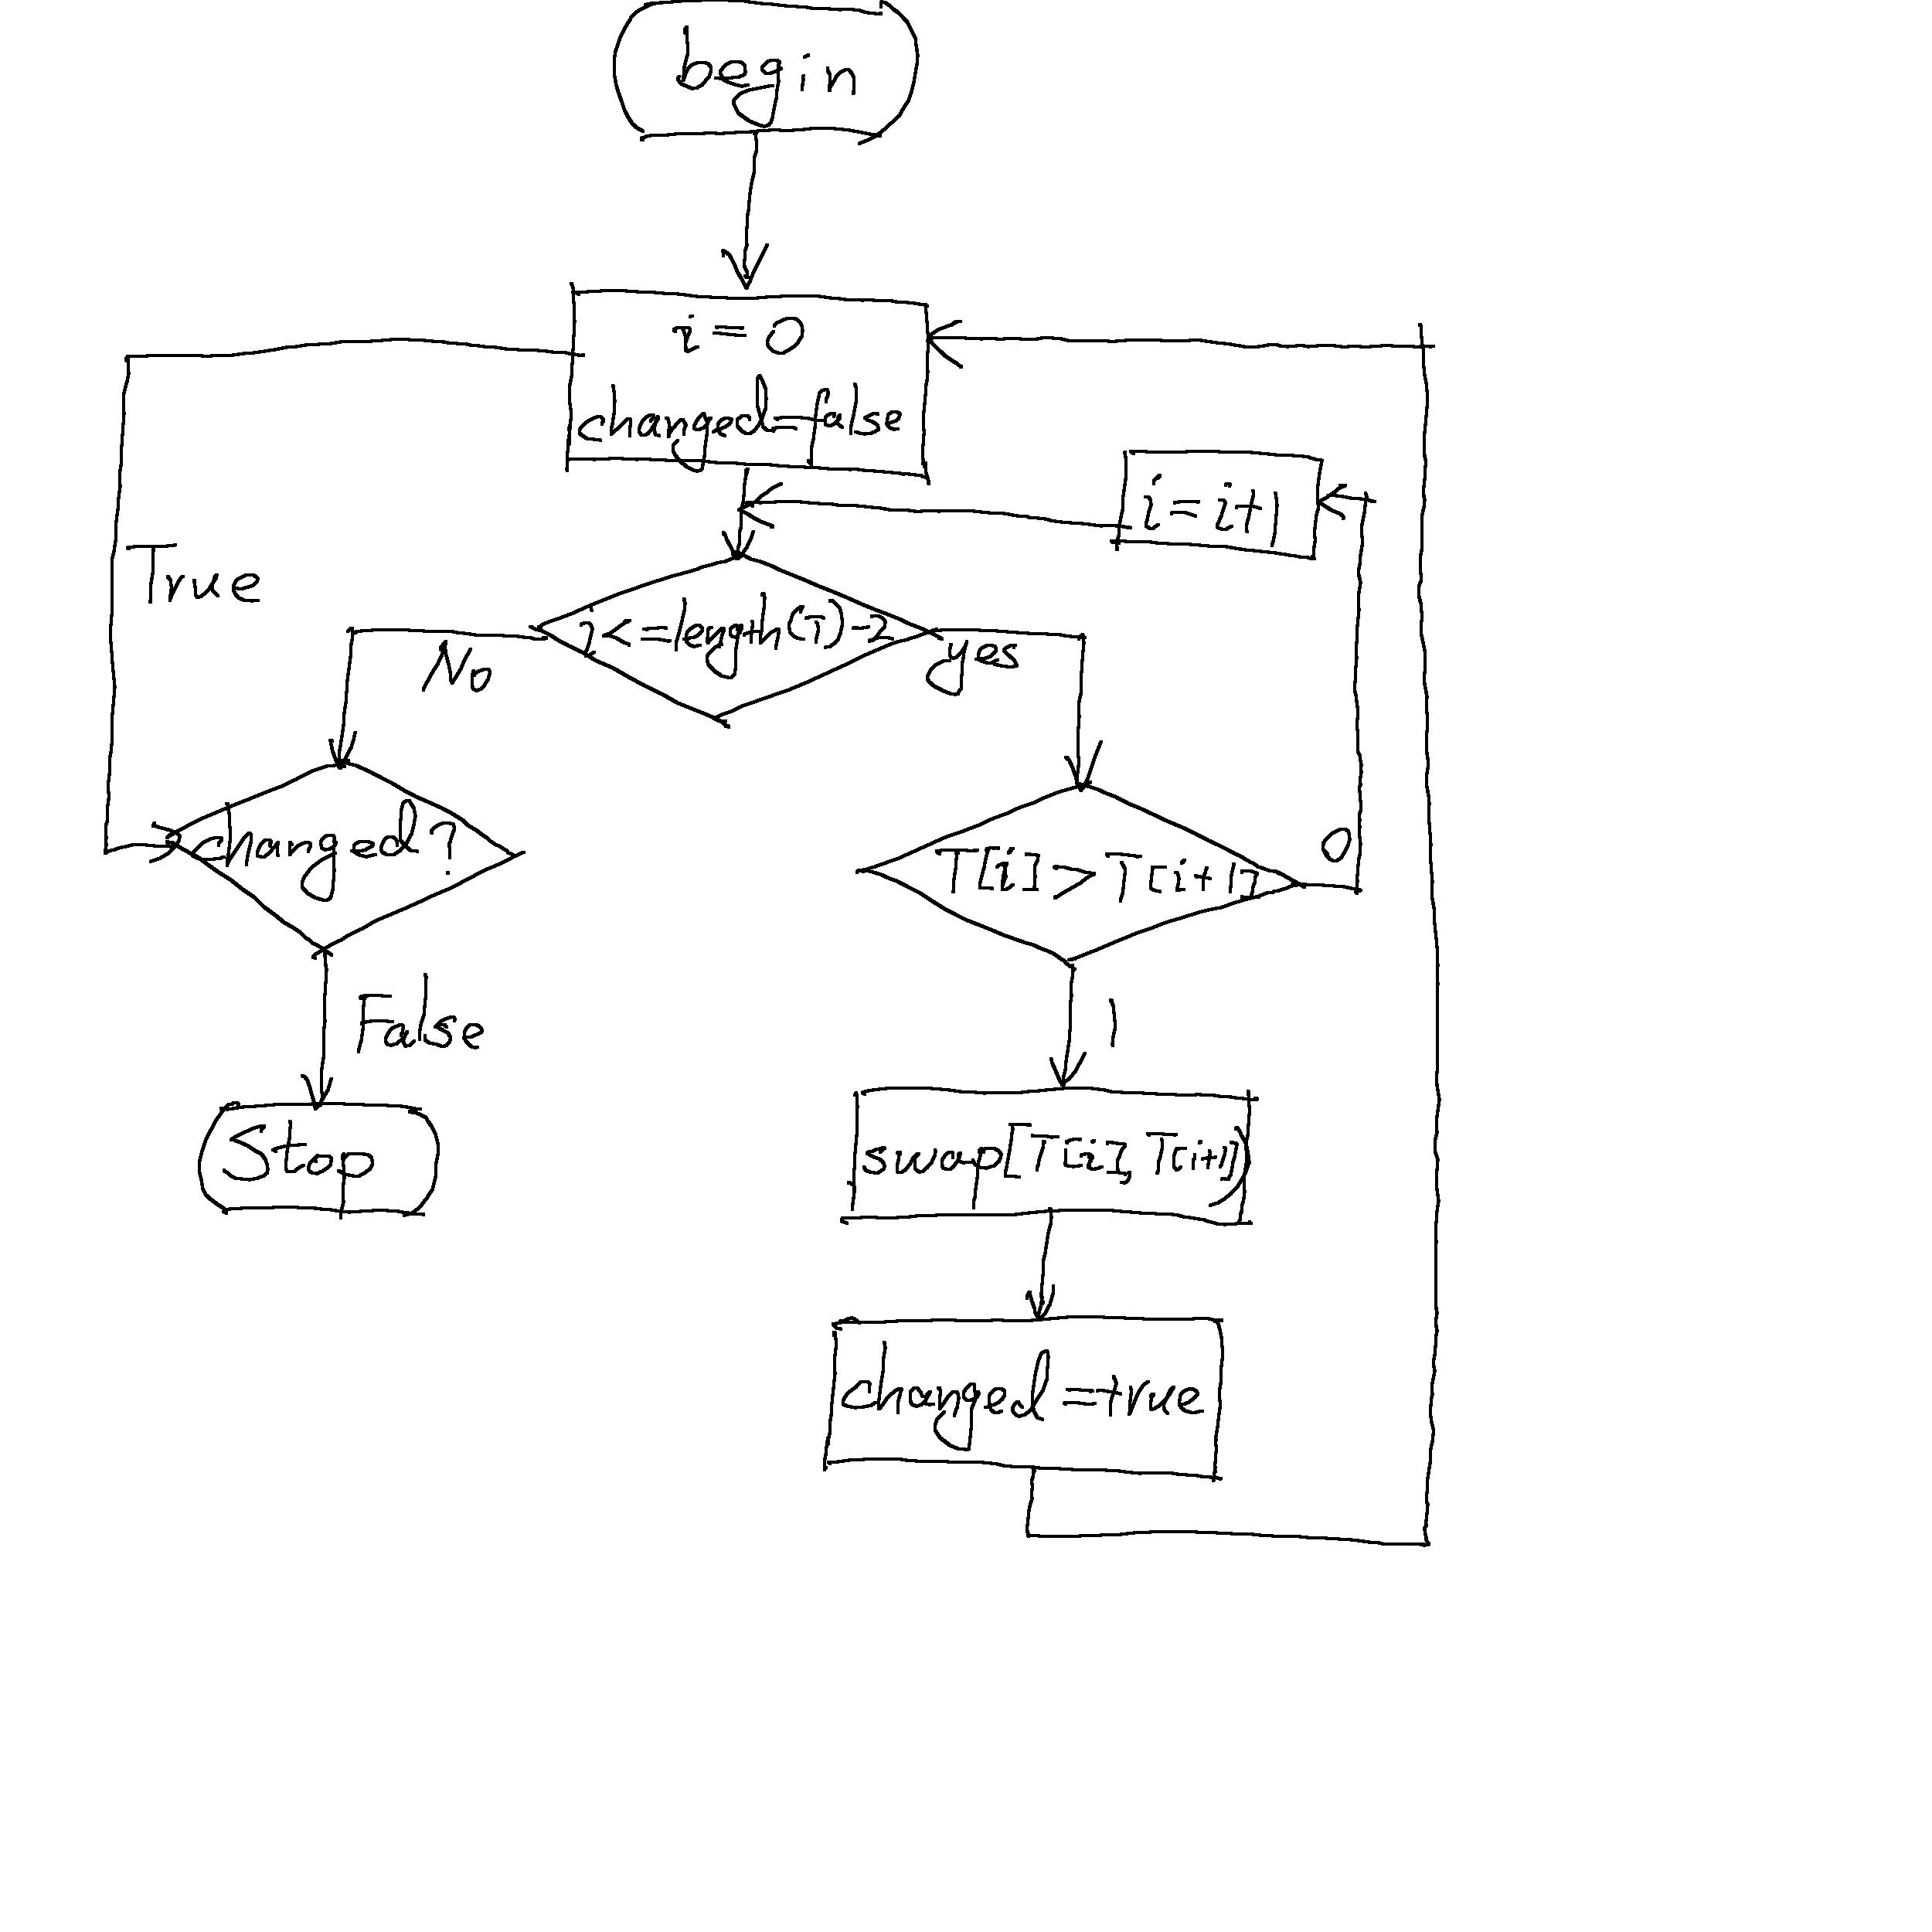 begin
i = 0
changed=false
i = i+1
True
i<=length(T)-2
No
yes
changed?
T[i]>T[i+1]
0
False
1
Stop
swap[T[i],T[i+1])
changed=true